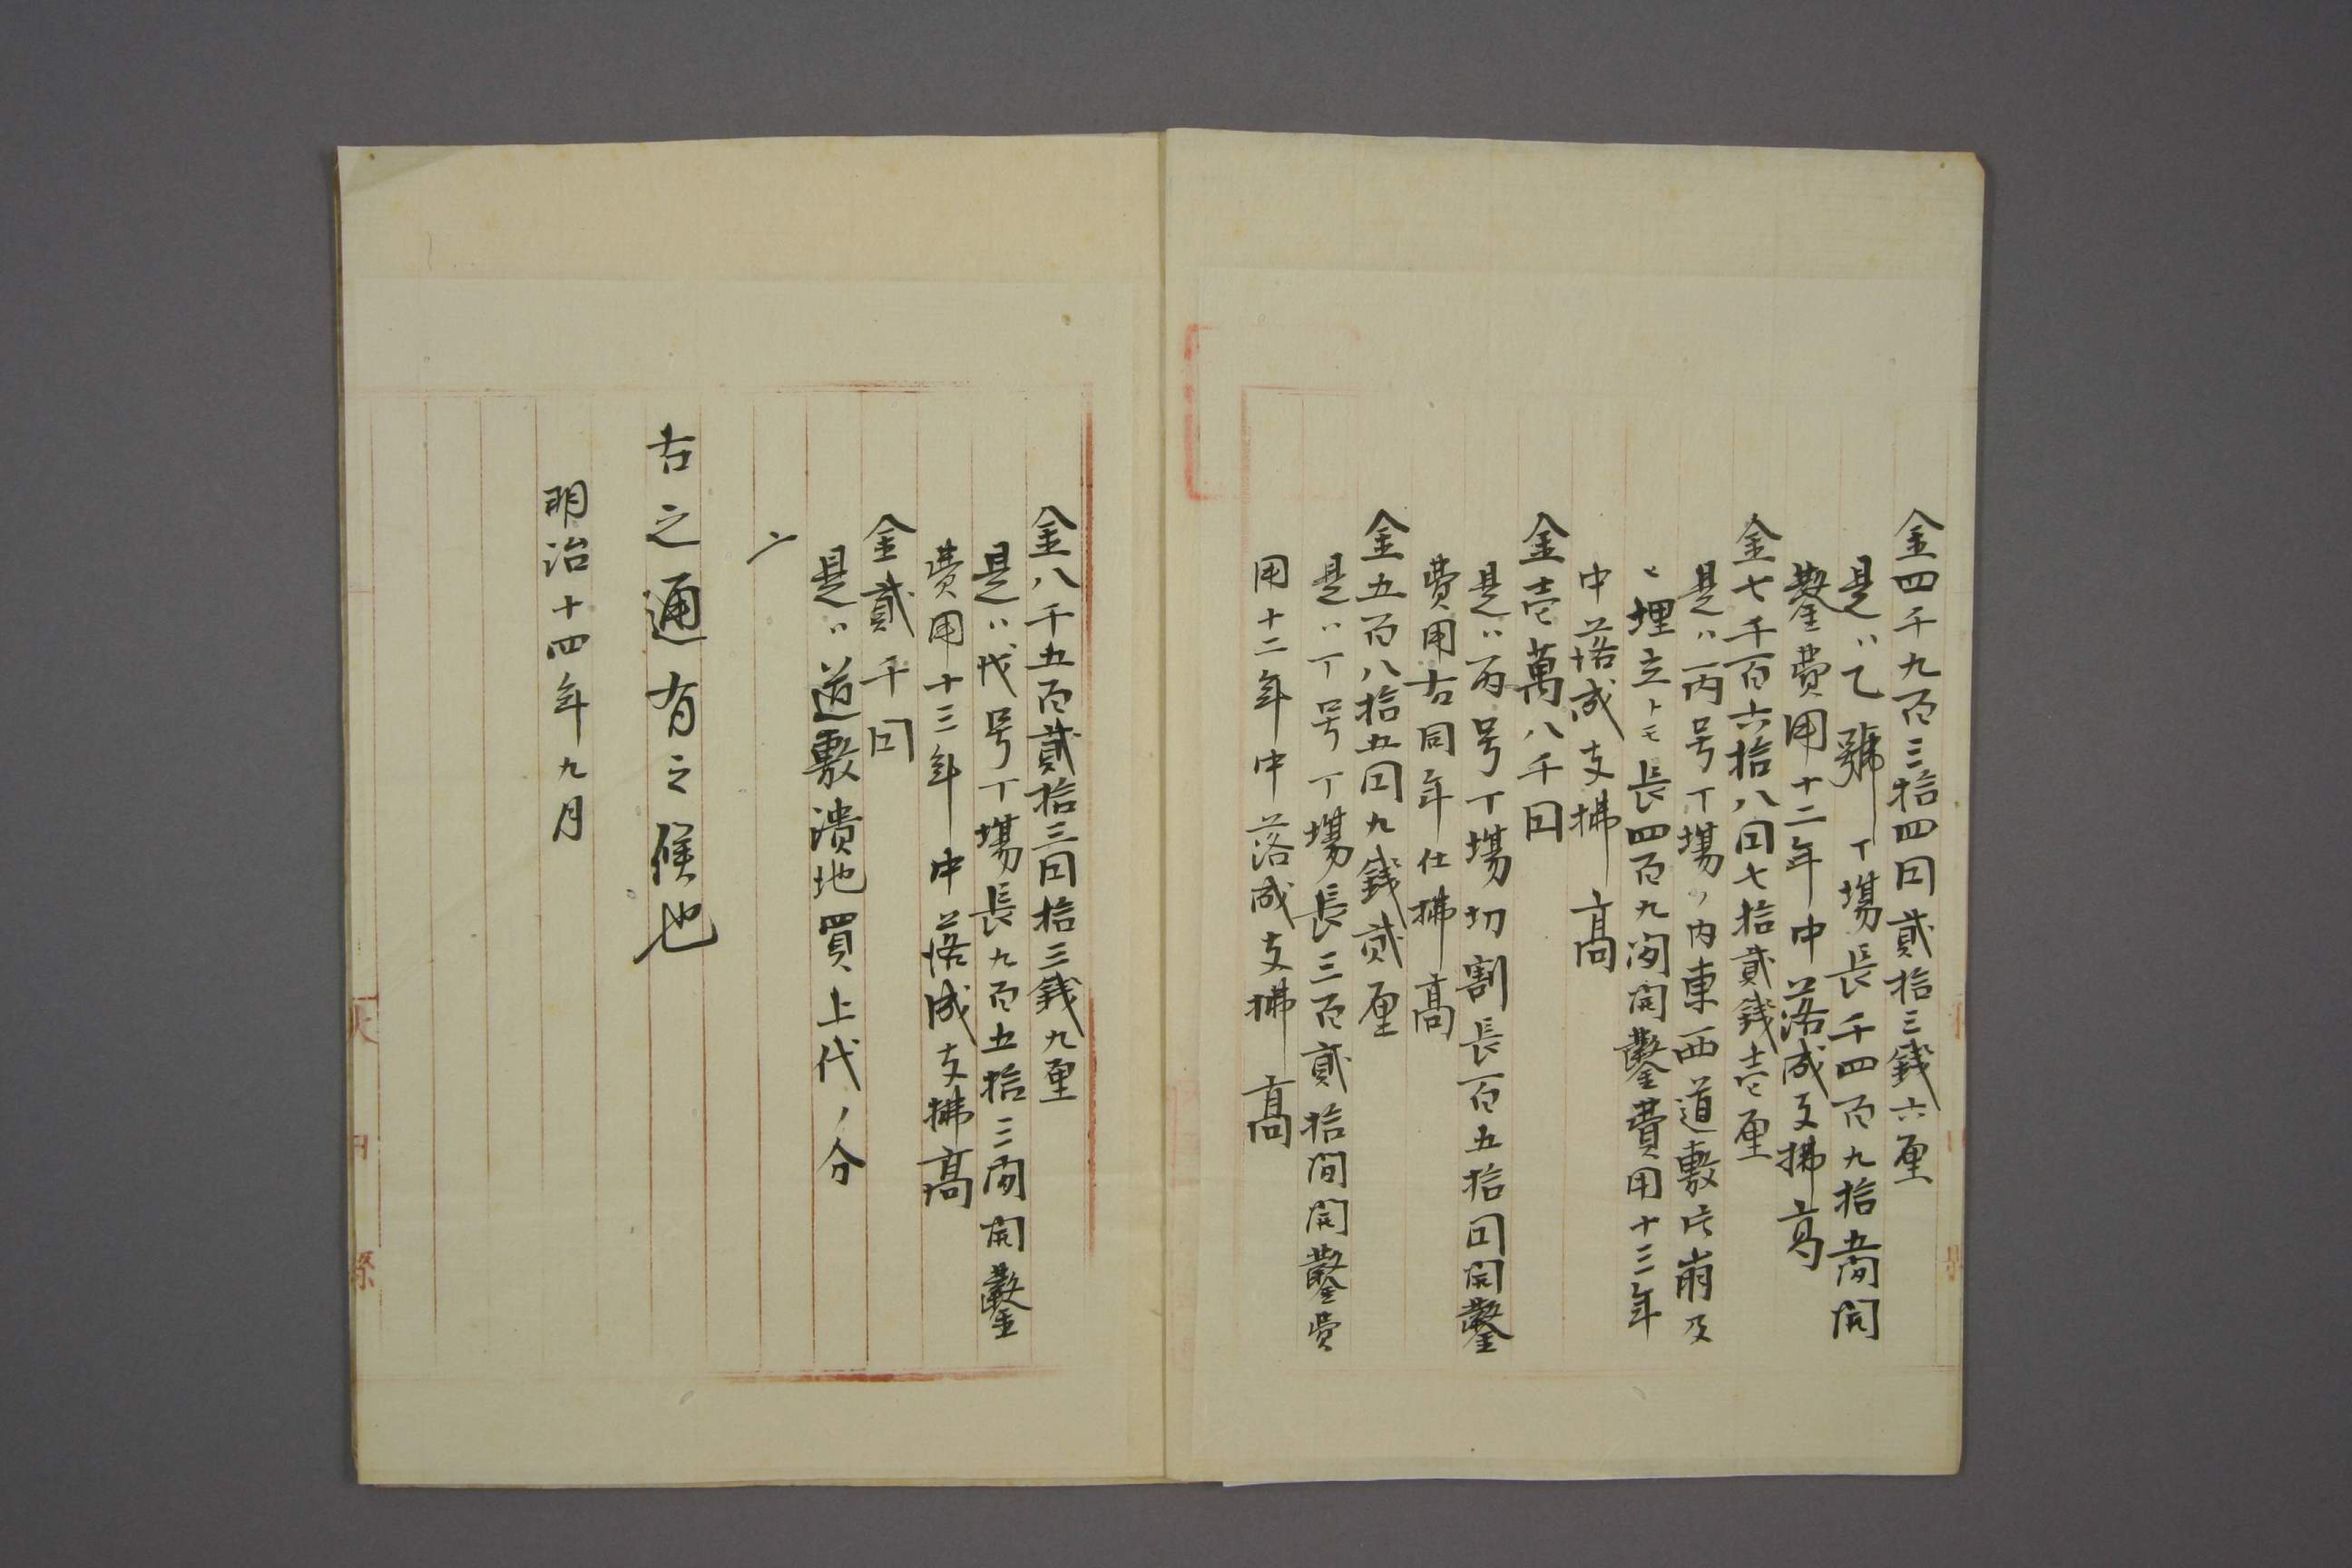 金四千九百三拾四円貳拾三錢六厘
是ハ乙號丁場長千四百九拾五間開
鑿費用十二年中落成支拂高
金七千百六拾八円七拾貳錢壱厘
是ハ丙号丁場ノ内東西道敷片崩及
ヒ埋立トモ長四百九間開鑿費用十三年
中落成支拂高
金壱萬八千円
是ハ丙号丁場切割長百五拾間開鑿
費用右同年仕拂高
金五百八拾五円九錢貳厘
是ハ丁号丁場長三百貳拾間開鑿費
用十二年中落成支拂高
金八千五百貳拾三円拾三錢九厘
是ハ戊号丁場長九百五拾三間開鑿
費用十三年中落成支拂高
金貳千円
是ハ道敷潰地買上代ノ分
〆
右之通有之候也
明治十四年九月